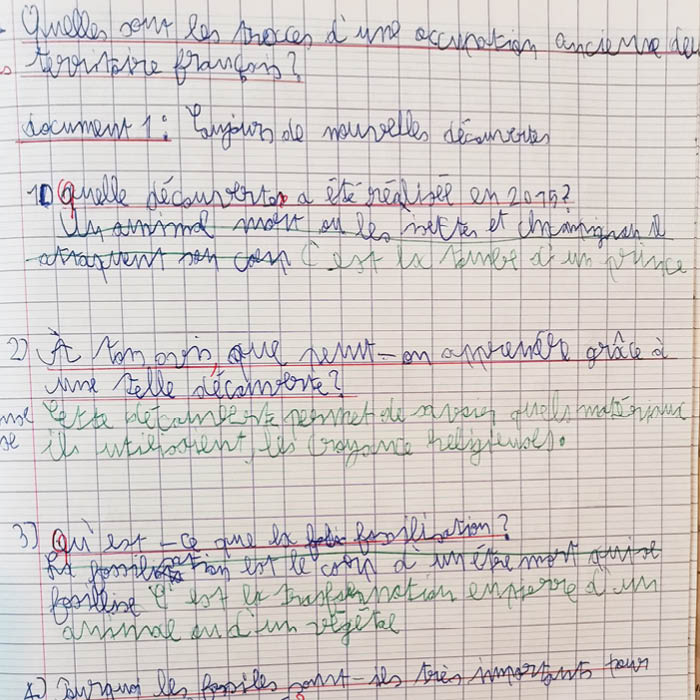 Quelles sont les traces d'une occupation ancienne deu
territoire françois?
document 1: Toujours de nouvelles découvertes
1) Quelle découverte a été réalisée en 2015?
Un animal mort ou les et champignon
attaquent son corp C'est la tombe d'un prince
2) À ton avis, que peut-on apprendre grâce à
une telle découverte?
Cette découverte permet de savoir quels matériaux
ils utilisaient, les croyance religieuses.
3) Qu'est-ce que la fossilisation?
La fossilisation est le corp d'un être mort qui se
fossilise C'est la transformation en pierre d'un
animal ou d'un végétal
4) Pourquoi les fossiles sont-ils très importants pour